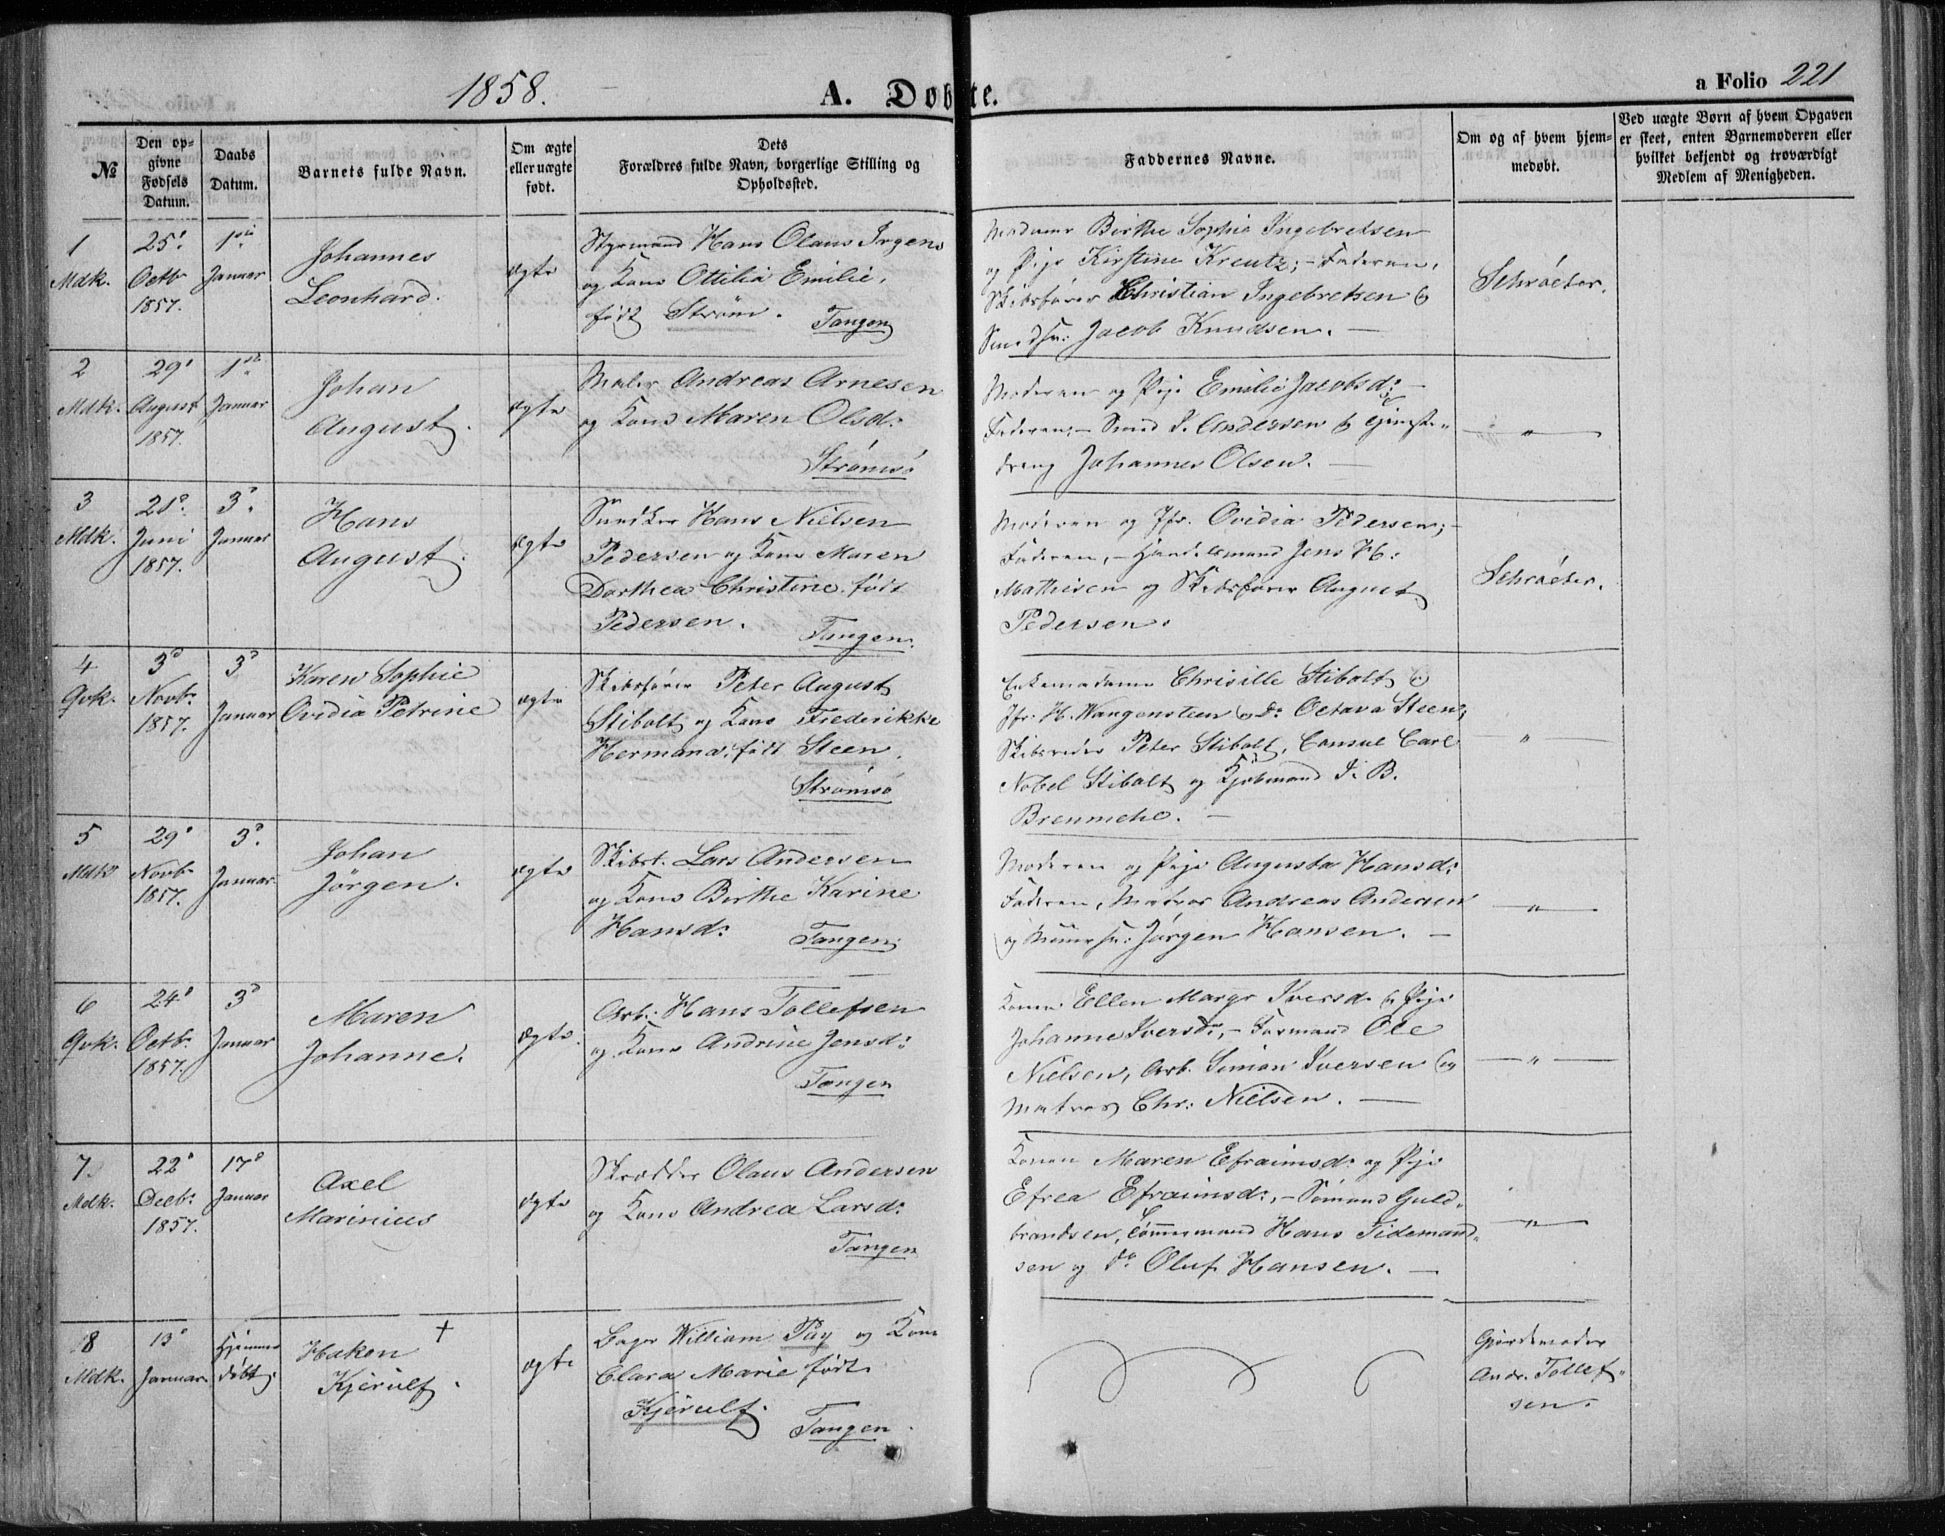 1858.
A. Døbte.
a Folio 221
№
Den op-
givne
Fødsels
Datum.
Daabs
Datum.
Barnets fulde Navn.
Om ægte
eller uægte
født.
Dets
Forældres fulde Navn, borgerlige Stilling og
Opholdssted.
Faddernes Navne.
Om og af hvem hjem-
medøbt.
Ved uægte Børn af hvem Opgaven
er skeet, enten Barnemoderen eller
hvilket bekjendt og troværdigt
Medlem af Menigheden.
1
Mdk.
25d
Octb
1857.
1ste
Januar
Johannes
Leonhard.
ægte
Styrmand Hans Olaus Irgens
og Kone Ottilia Emilie,
født Strøm.
Tangen
Madame Birthe Sophie Ingebretsen
og Pige Kirstine Kreutz; - Faderen,
Skibsfører Christian Ingebretsen og
Smedsv: Jacob Knudsen. -
Schröeter.
2
Mdk.
29d
August
1857.
1ste
Januar
Johan
August.
ægte
Maler Andreas Arnesen
og Kone Maren Olsd:
Strømsø
Moderen og Pige Emilie Jacobsd: -
Faderen, - Smed P. Andersen og Tjeneste-
dreng Johannes Olsen. -
"
3
Mdk.
21d
Juni
1857.
3d
Januar
Hans
August.
ægte
Snedker Hans Nielsen
Pedersen og Kone Maren
Dorthea Christine født
Pedersen.
Tangen.
Moderen og Jfr. Ovidia Pedersen; -
Faderen, - Handelsmand Jens H:
Mathisen og Skibsfører August
Pedersen.
Schröeter.
4
Qvk.
3d
Novb.
1857.
3d
Januar
Karen Sophie
Ovidia Petrine
ægte
Skibsfører Peter August
Stibolt og Kone Frederikke
Hermana, født Steen.
Strømsø
Enkemadame Chrisille Stibolt og
Jfr. H. Wangensteen og Do Octava Steen;
Skibsreder Peter Stibolt, Consul Carl
Nobel Stibolt og Kjøbmand J. B.
Brenmehl. -
"
5
Mdk
29d
Novb.
1857.
3d
Januar
Johan
Jörgen.
ægte
Skibst. Lars Andersen
og Kone Birthe Karine
Hansd:
Tangen.
Moderen og Pige Augusta Hansd:
Faderen, Matros Andreas Andersen
og Jørgen Hansen. -
"
6
Qvk.
24d
Octb.
1857.
3d
Januar
Maren
Johanne.
ægte.
Arb. Hans Tollefsen
og Kone Andrine Jensd:
Tangen
Konen Ellen Margr Iversd. og Pige
Johanne Iversd:, - Formand Ole
Nielsen, Arb. Simon Iversen og
Matros Chr: Nielsen. -
"
7.
Mdk.
22d
Decb.
1857.
17d
Januar
Axel
Marinius
ægte
Skrædder Olaus Andersen
og Kone Andrea Larsd:
Tangen
Konen Maren Efraimsd: og Pige
Efrea Efraimsd:, - Sömand Guld-
brandsen, Tömmermand Hans Tidemand-
sen og Do Oluf Hansen. -
"
8
Mdk.
13d
Januar
Hjemme
døbt.
Haken +
Kjerulf.
ægte
Bager William Pay og Kone
Clara Marie født
Kjerulf.
Tangen.
Gjordemoder
Andr. Tollef-
sen.